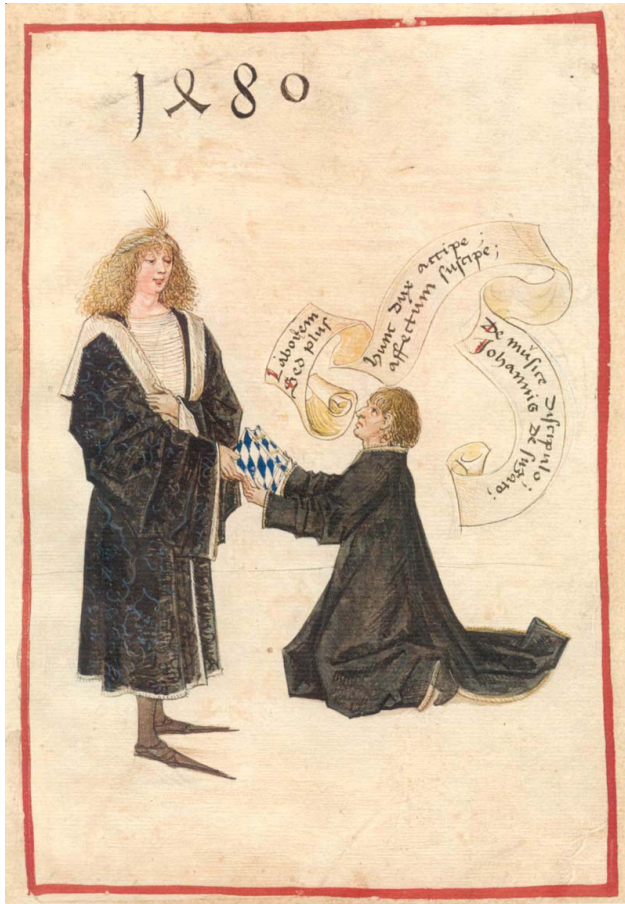 1480
Laborem hunc dux accipe;
Sed plus affectum suscipe;
De musice discipulo;
Johannis de suzato;